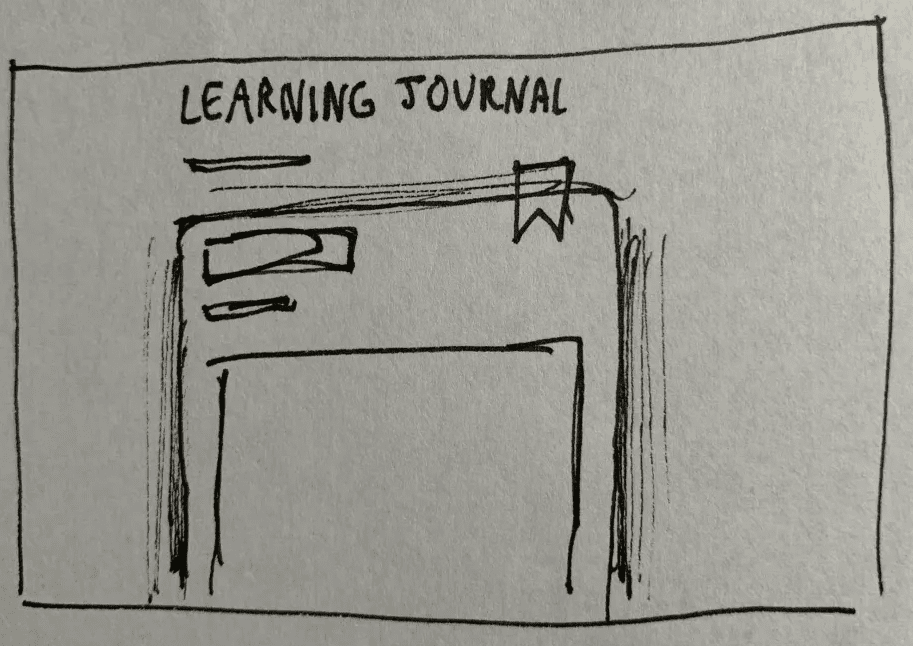 LEARNING JOURNAL